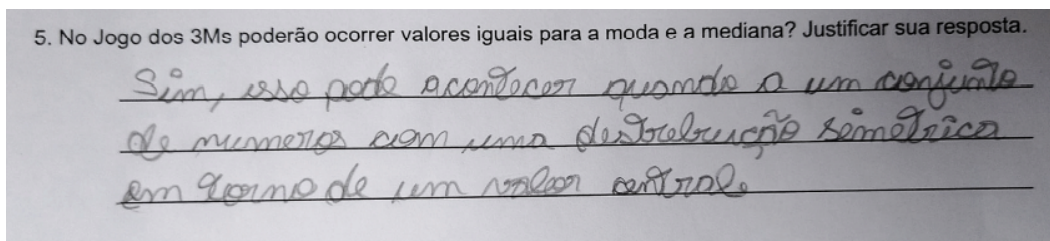 5. No Jogo dos 3Ms poderão ocorrer valores iguais para a moda e a mediana? Justificar sua resposta.
Sim, isso pode acontecer quando a um conjunto
de numeros com uma destrebruição semetrica
em torno de um valor central.